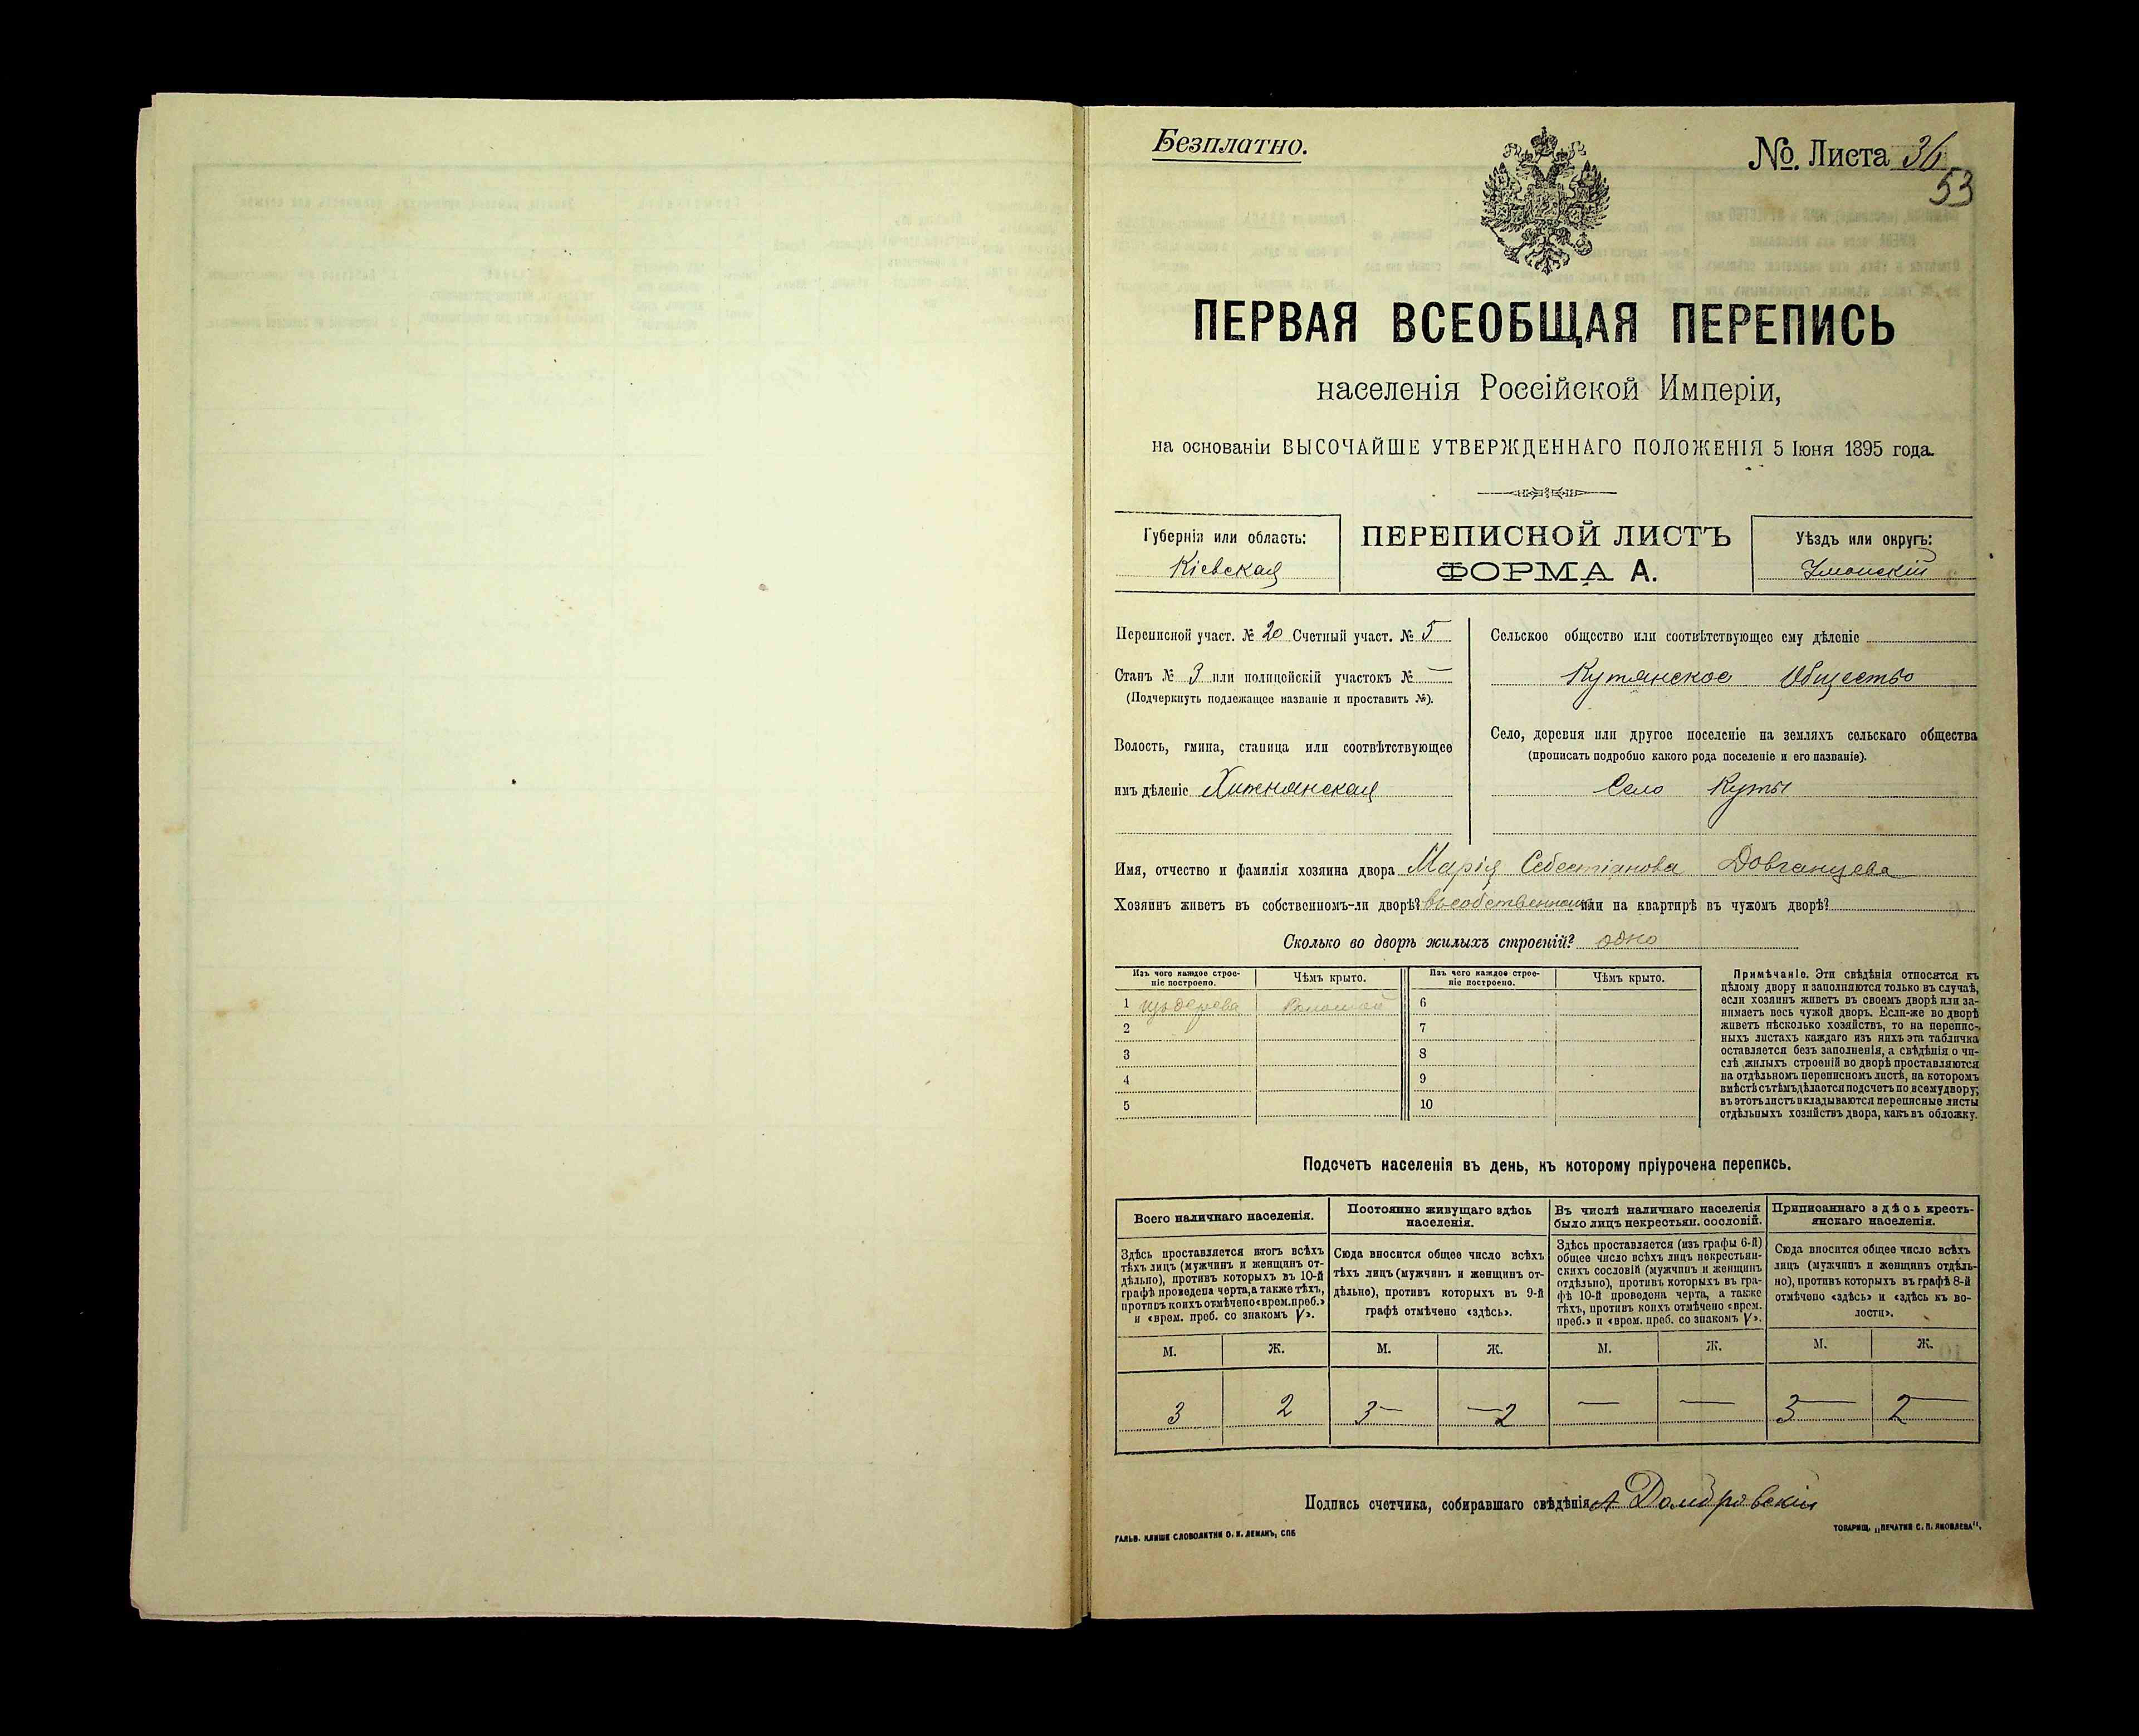 Безплатно.
№ Листа 36
53
ПЕРВАЯ ВСЕОБЩАЯ ПЕРЕПИСЬ
населенія Россійской Имперіи,
на основаніи ВЫСОЧАЙШЕ УТВЕРЖДЕННАГО ПОЛОЖЕНІЯ 5 Іюня 1895 года.
Губернія или область:
Кіевская
ПЕРЕПИСНОЙ ЛИСТЪ
ФОРМА А.
Уѣздъ или округъ:
Уманскій
Переписной участ. № 20 Счетный участ. № 5
Станъ № 3 или полицейскій участокъ № —
(Подчеркнуть подлежащее названіе и проставить №).
Волость, гмина, станица или соотвѣтствующее
имъ дѣленіе Хижнянская
Сельское общество или соотвѣтствующее ему дѣленіе
Кутянское Общество
Село, деревня или другое поселеніе на земляхъ сельскаго общества
(прописать подробно какого рода поселеніе и его названіе).
Село Куты
Имя, отчество и фамилія хозяина двора Марія Себестіянова Довганцева
Хозяинъ живетъ въ собственномъ-ли дворѣ? въ собственномъ или на квартирѣ въ чужомъ дворѣ?
Сколько во дворѣ жилыхъ строеній? одно
Изъ чего каждое строе-
ніе построено.
Чѣмъ крыто.
Изъ чего каждое строе-
ніе построено.
Чѣмъ крыто.
1 изъ дерева Соломой 6
2 7
3 8
4 9
5 10
Примѣчаніе. Эти свѣдѣнія относятся къ
цѣлому двору и заполняются только въ случаѣ,
если хозяинъ живетъ въ своемъ дворѣ или за-
нимаетъ весь чужой дворъ. Если-же во дворѣ
живетъ нѣсколько хозяйствъ, то на перепис-
ныхъ листахъ каждаго изъ нихъ эта табличка
оставляется безъ заполненія, а свѣдѣнія о чи-
слѣ жилыхъ строеній во дворѣ проставляются
на отдѣльномъ переписномъ листѣ, на которомъ
вмѣстѣ съ тѣмъ дѣлается подсчетъ по всему двору;
въ этотъ листъ вкладываются переписные листы
отдѣльныхъ хозяйствъ двора, какъ въ обложку.
Подсчетъ населенія въ день, къ которому пріурочена перепись.
Всего наличнаго населенія.
Здѣсь проставляется итогъ всѣхъ
тѣхъ лицъ (мужчинъ и женщинъ от-
дѣльно), противъ которыхъ въ 10-й
графѣ проведена черта, а также тѣхъ,
противъ коихъ отмѣчено «врем. преб.»
и «врем. преб. со знакомъ V».
Постоянно живущаго здѣсь
населенія.
Сюда вносится общее число всѣхъ
тѣхъ лицъ (мужчинъ и женщинъ от-
дѣльно), противъ которыхъ въ 9-й
графѣ отмѣчено «здѣсь».
Въ числѣ наличнаго населенія
было лицъ некрестьян. сословій.
Здѣсь проставляется (изъ графы 6-й)
общее число всѣхъ лицъ некрестьян-
скихъ сословій (мужчинъ и женщинъ
отдѣльно), противъ которыхъ въ гра-
фѣ 10-й проведена черта, а также
тѣхъ, противъ коихъ отмѣчено «врем.
преб.» и «врем. преб. со знакомъ V».
Приписаннаго здѣсь кресть-
янскаго населенія.
Сюда вносится общее число всѣхъ
лицъ (мужчинъ и женщинъ отдѣль-
но), противъ которыхъ въ графѣ 8-й
отмѣчено «здѣсь» и «здѣсь къ во-
лости».
М. Ж. М. Ж. М. Ж. М. Ж.
3 2 3— —2 — — 3— 2—
Подпись счетчика, собиравшаго свѣдѣнія А Домбровскій
ГАЛЬВ. КЛИШЕ СЛОВОЛИТНИ О. И. ЛЕМАНЪ, СПБ
ТОВАРИЩ. „ПЕЧАТНЯ С. П. ЯКОВЛЕВА“.